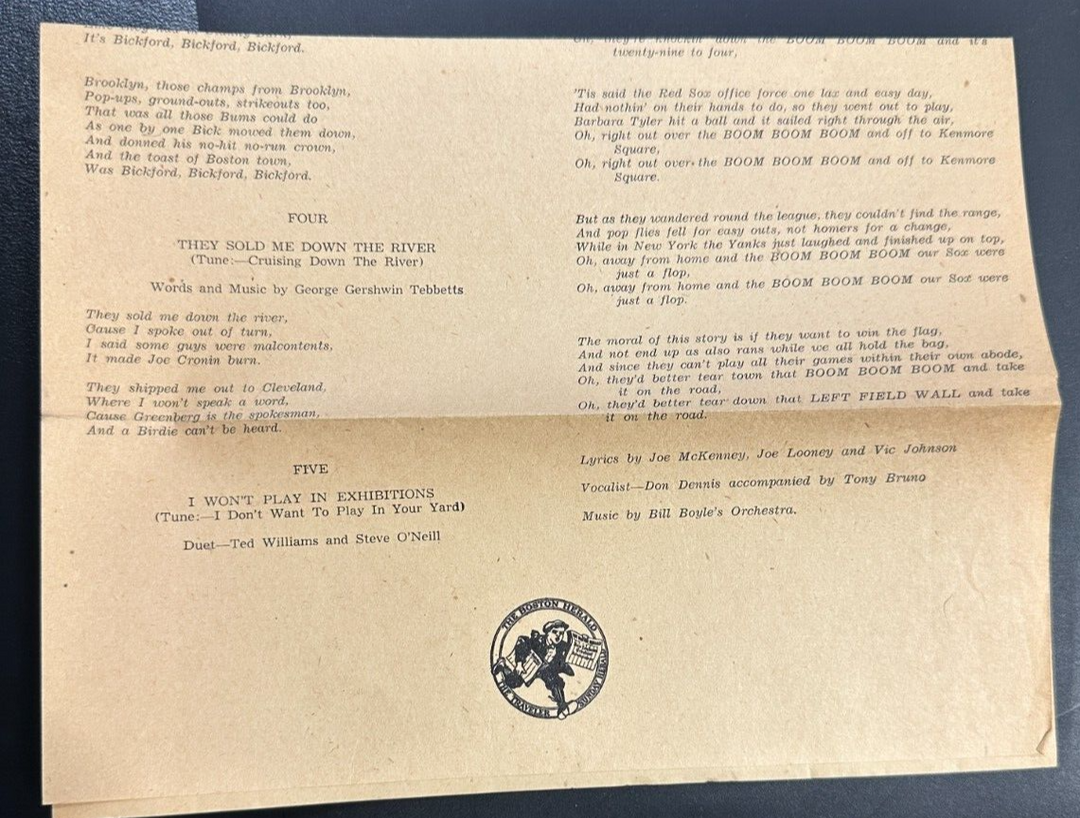 It's Bickford, Bickford, Bickford.
Brooklyn, those champs from Brooklyn,
Pop-ups, ground-outs, strikeouts too,
That was all those Bums could do
As one by one Bick mowed them down,
And donned his no-hit no-run crown,
And the toast of Boston town,
Was Bickford, Bickford, Bickford.
FOUR
THEY SOLD ME DOWN THE RIVER
(Tune:—Cruising Down The River)
Words and Music by George Gershwin Tebbetts
They sold me down the river,
Cause I spoke out of turn,
I said some guys were malcontents,
It made Joe Cronin burn.
They shipped me out to Cleveland,
Where I won't speak a word,
Cause Greenberg is the spokesman,
And a Birdie can't be heard.
FIVE
I WON'T PLAY IN EXHIBITIONS
(Tune:—I Don't Want To Play In Your Yard)
Duet—Ted Williams and Steve O'Neill
Oh, they're knockin' down the BOOM BOOM BOOM and it's
twenty-nine to four,
'Tis said the Red Sox office force one lax and easy day,
Had nothin' on their hands to do, so they went out to play,
Barbara Tyler hit a ball and it sailed right through the air,
Oh, right out over the BOOM BOOM BOOM and off to Kenmore
Square,
Oh, right out over the BOOM BOOM BOOM and off to Kenmore
Square.
But as they wandered round the league, they couldn't find the range,
And pop flies fell for easy outs, not homers for a change,
While in New York the Yanks just laughed and finished up on top,
Oh, away from home and the BOOM BOOM BOOM our Sox were
just a flop,
Oh, away from home and the BOOM BOOM BOOM our Sox were
just a flop.
The moral of this story is if they want to win the flag,
And not end up as also rans while we all hold the bag,
And since they can't play all their games within their own abode,
Oh, they'd better tear town that BOOM BOOM BOOM and take
it on the road,
Oh, they'd better tear down that LEFT FIELD WALL and take
it on the road.
Lyrics by Joe McKenney, Joe Looney and Vic Johnson
Vocalist—Don Dennis accompanied by Tony Bruno
Music by Bill Boyle's Orchestra.
THE BOSTON HERALD
THE TRAVELER
SUNDAY HERALD